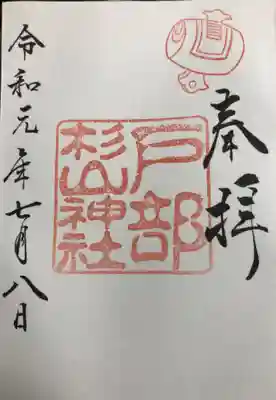 奉拝
戸部
杉山神社
令和元年七月八日